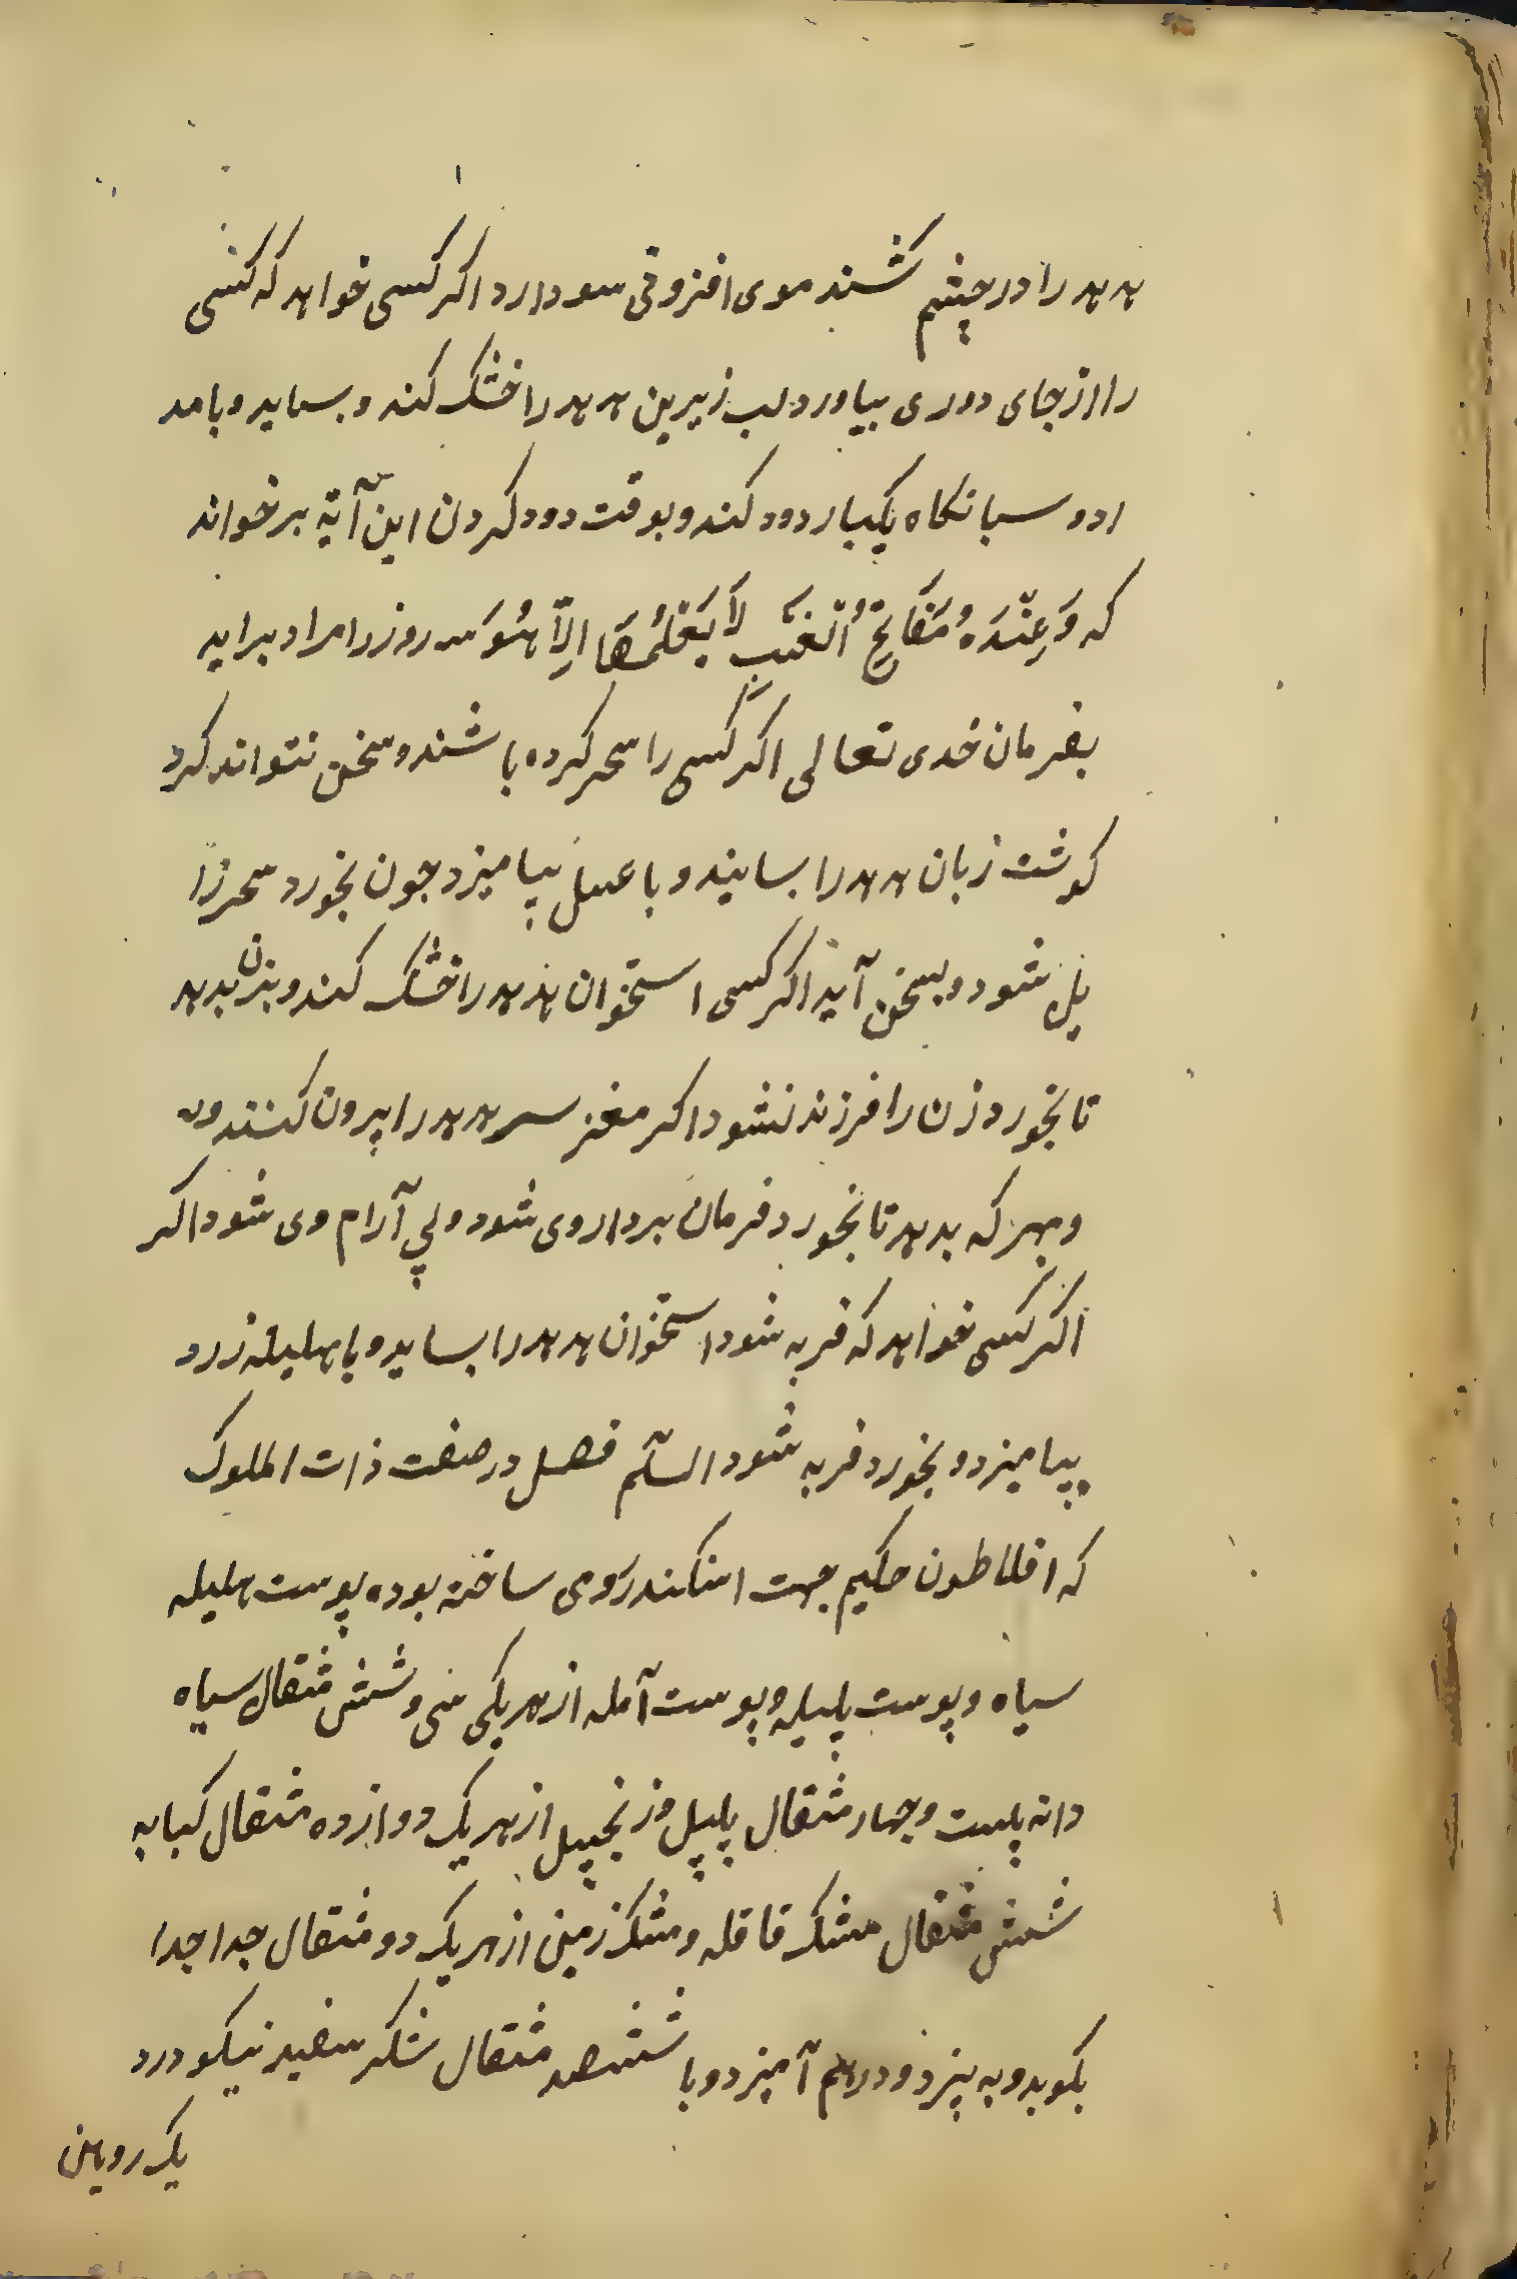 هدهد را در چشم کشند موی افزوتی سود دارد اکر کسی خواهد که کسی
را از جای دوری بیاورد لب زیرین هدهد را خشک کند و بساید و بامد
ادو سبانکاه یکبار دود کند و بوقت دود کردن این آیة برخواند
که وَعِنْدَهُ مَفَاتِحُ الْغَیْبِ لَا یَعْلَمُهَا اِلّاَ هُوَ سه روز را مراد براید
بفرمان خدی تعالی اکر کسی را سحر کرده باشند و سخن نتواند کرد
کوشت زبان هدهد را بسایند و با عسل بیامیزد جون بخورد سحر زا
یل شود و بسخن آید اکر کسی استخوان هدهد را خشک کند و بزن بدهد
تا بخورد زن را فرزند نشود اکر مغز سر هدهد را بیرون کنند
و بهر که بدهد تا بخورد فرمان بردار وی شود و بی آرام وی شود اکر
اکر کسی خواهد که فربه شود استخوان هدهد را بساید و با هلیله زرد
بیامیزد و بخورد فربه شود السّلم فصل در صفت ذات الملوک
که افلاطون حکیم جهت اسکندر رومی ساخته بوده پوست هلیله
سیاه و پوست بلیله و پوست آمله از هر یکی سی و شش مثقال سیاه
دانه بیست و چهار مثقال پلپل و زنجبیل از هر یک دوازده مثقال کبابه
شش مثقال مشک قاقله و مشک زمینی از هر یک دو مثقال جدا جدا
بکوبد و به بیزد و درهم آمیزد و با ششصد مثقال شکر سفید نیکو درد
یک روین